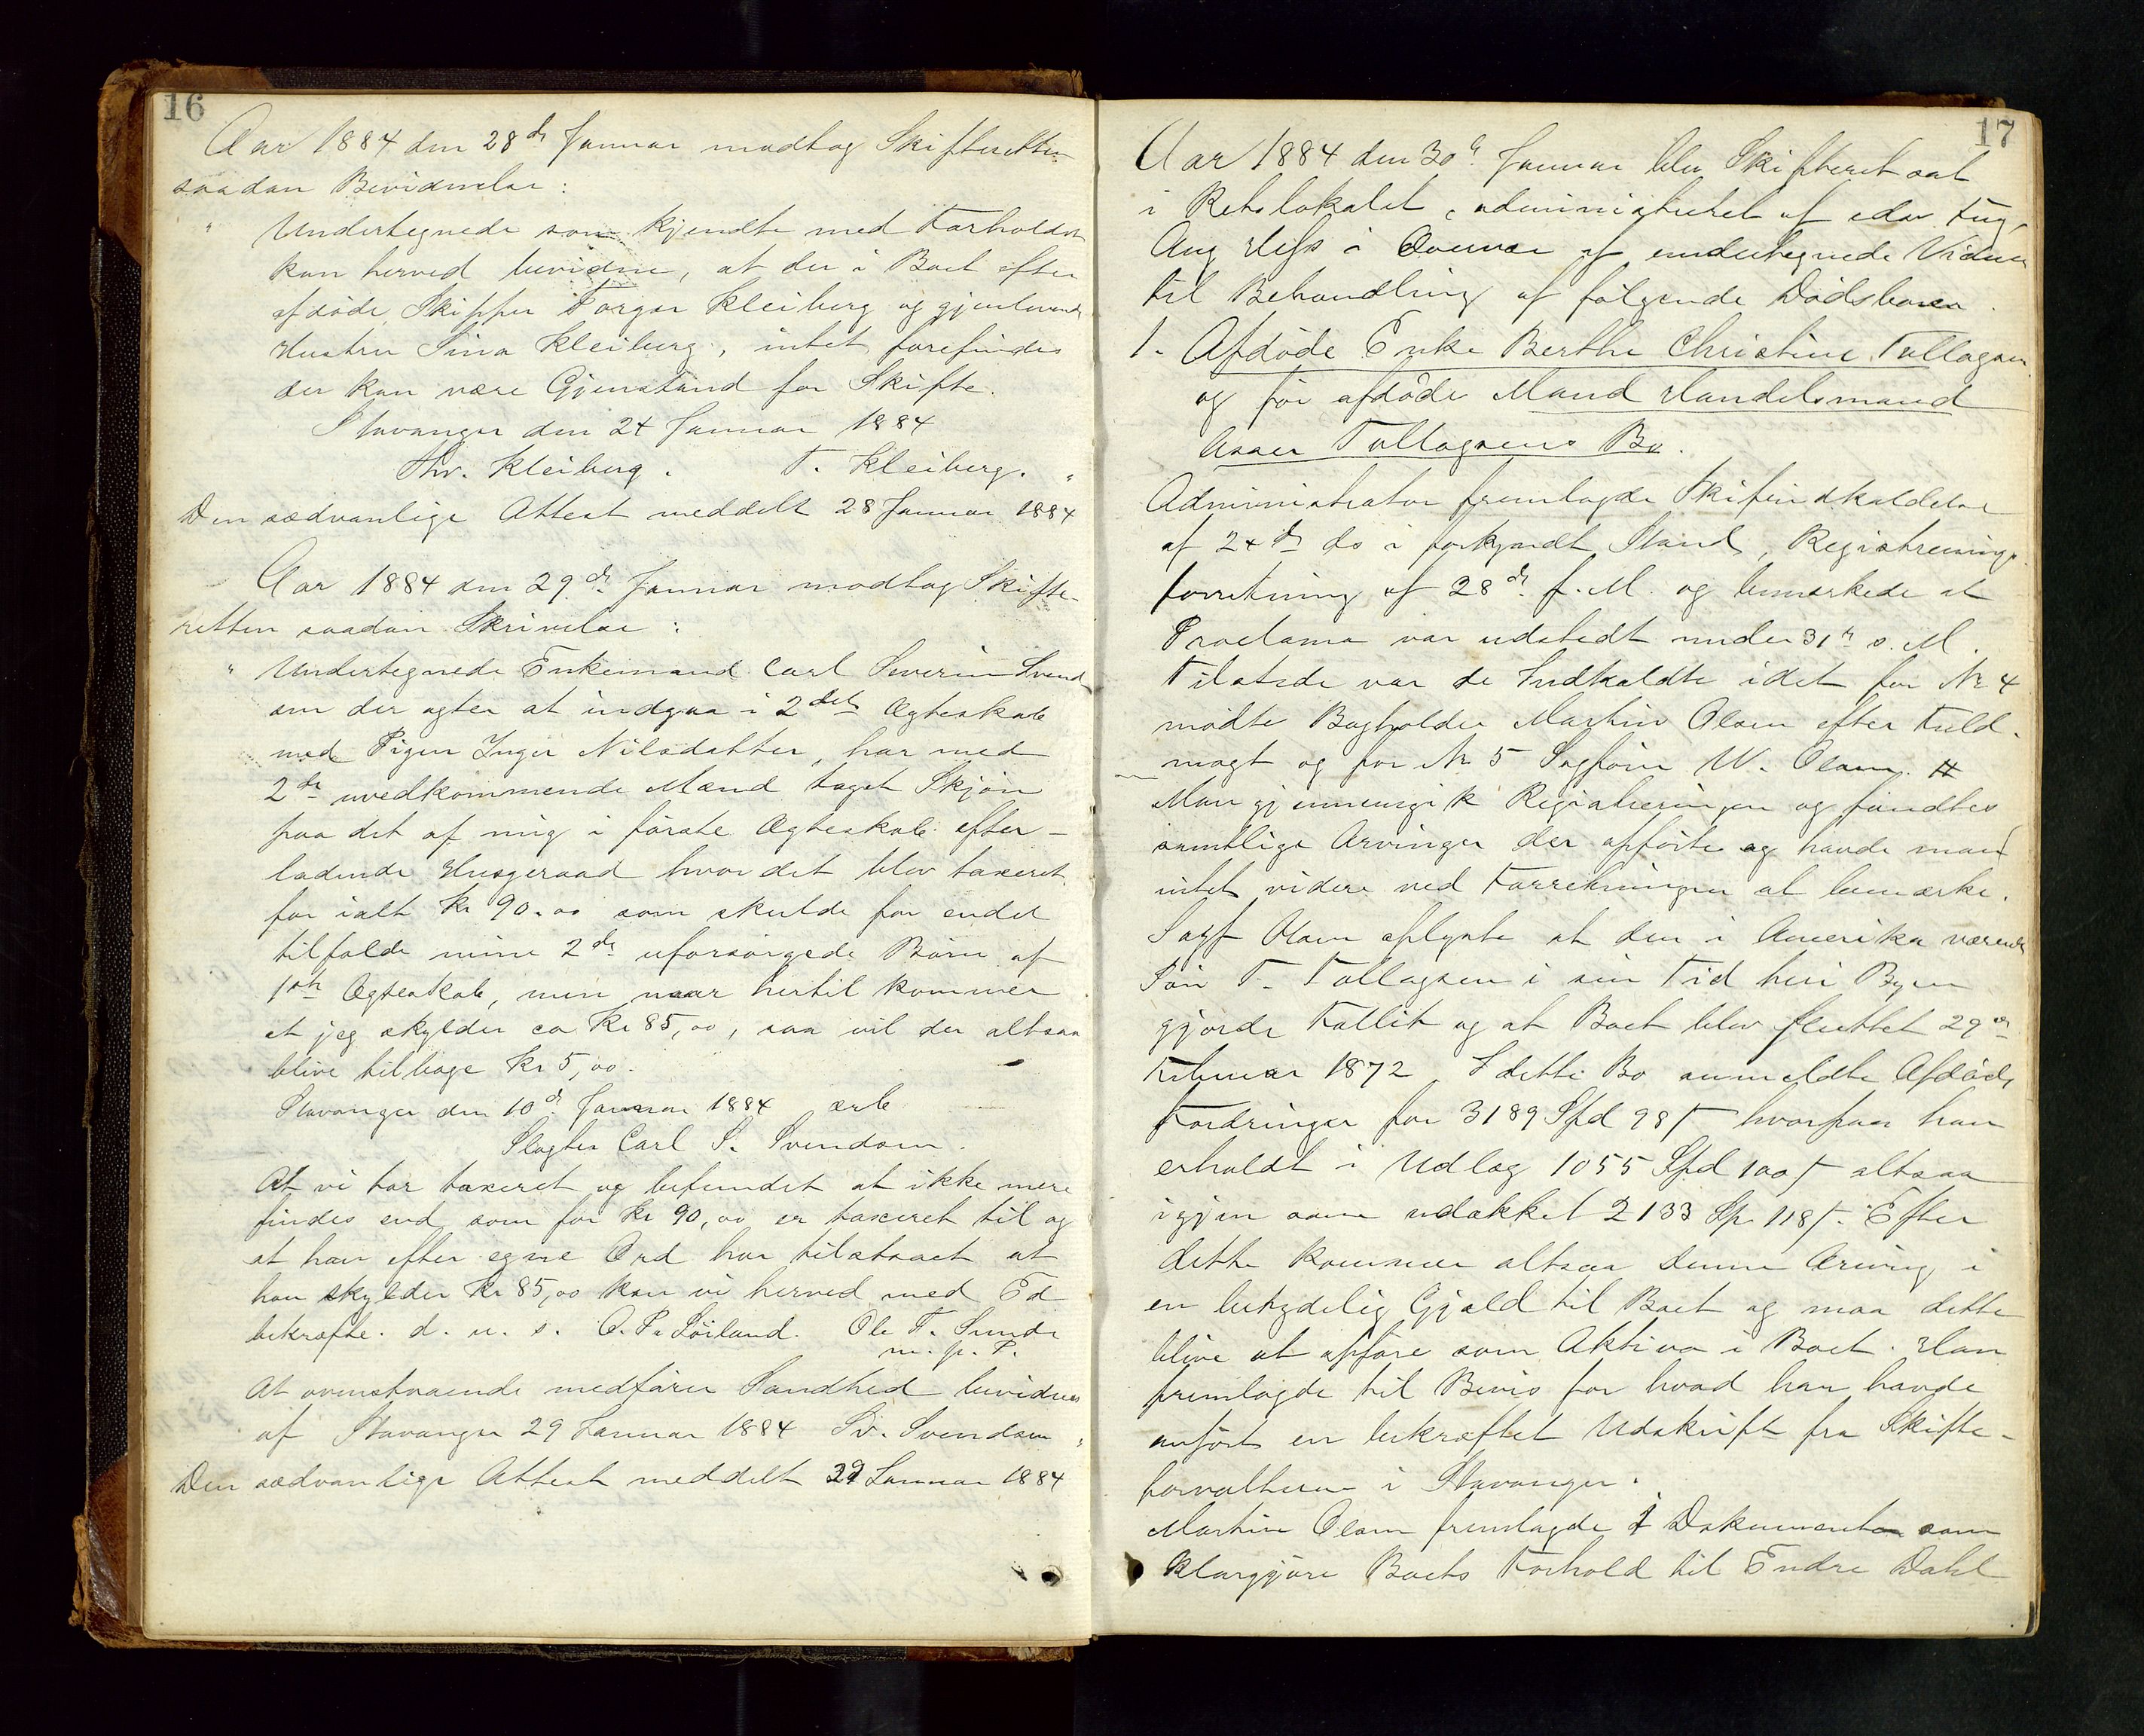 16
Aar 1884 den 28de Januar modtog Skifteretten
saadan Bevidnelse:
"Undertegnede som kjendte med Forholdet
kan herved bevidne, at der i Boet efter
afdøde Skipper Torger Kleiberg og gjenlevende
Hustru Sina Kleiberg, intet forefindes
der kan være Gjenstand for Skifte.
Stavanger den 24 Januar 1884
Thv. Kleiberg. T. Kleiberg."
Den sædvanlige Attest meddelt 28 Januar 1884
Aar 1884 den 29de Januar modtog Skifte-
retten saadan Skrivelse:
"Undertegnede Enkemand Carl Severin Svend
sen der agter at indgaa i 2det Ægteskab
med Pigen Inger Nilsdatter, har med
2de uvedkommende Mænd taget Skjøn
paa det af mig i første Ægteskab efter-
ladende Husgeraad hvor det blev taxeret
for ialt Kr 90.00 som skulde for endel
tilfalde mine 2de uforsørgede Børn af
1ste Ægteskab, men naar hertil kommer
at jeg skylder ca Kr 85,00, saa vil der altsaa
blive tilbage Kr 5,00.
Stavanger den 10de Januar 1884 ærb
Slagter Carl S. Svendsen.
At vi har taxeret og befundet at ikke mere
findes end som for Kr 90,00 er taxeret til og
at han efter egne Ord har tilstaaet at
han skylder Kr 85,00 kan vi herved med Ed
bekræfte. d. u. s. O. P. Sörland. Ole T. Sunde
m. p. P.
At ovenstaaende medfører Sandhed bevidnes
af Stavanger 29 Januar 1884 Sv. Svendsen"
Den sædvanlige Attest meddelt 29 Januar 1884
17
Aar 1884 den 30te Januar blev Skifteret sat
i Retslokalet, administreret af edsv. Fuldm.
Aug Hess i Overvær af undertegnede Vidner
til Behandling af følgende Dødsboer.
1. Afdøde Enke Berthe Christine Tallagsen
og før afdøde Mand Handelsmand
Asser Tallagsens Bo.
Administrator fremlagde Skifteindkaldelse
af 24de ds i forkyndt Stand, Registrerings-
forretning af 28de f. M. og bemærkede at
Proclama var udstedt under 31te s. M.
Tilstede var de Indkaldte idet for No 4
mødte Bogholder Martin Olsen efter Fuld-
magt og for No 5 Sagfører W. Olsen.
Man gjennemgik Registreringen og fandtes
samtlige Arvinger der opførte og havde man
intet videre ved Forretningen at bemærke.
Sagf Olsen oplyste at den i Amerika værende
Søn T. Tallagsen i sin Tid her i Byen
gjorde Fallit og at Boet blev sluttet 29de
Februar 1872. I dette Bo anmeldte Afdøde
Fordringer for 3189 Spd 98 ß hvorpaa han
erholdt i Udlæg 1055 Spd 100 ß altsaa
igjen som udækket 2133 Sp. 118 ß. Efter
dette kommer altsaa denne Arving i
en betydelig Gjæld til Boet og maa dette
blive at opføre som Aktiva i Boet. Han
fremlagde til Bevis for hvad han havde
anført en bekræftet Udskrift fra Skifte-
forvalteren i Stavanger.
Martin Olsen fremlagde 2 Dokumenter som
klargjøre Boets Forhold til Endre Dahl